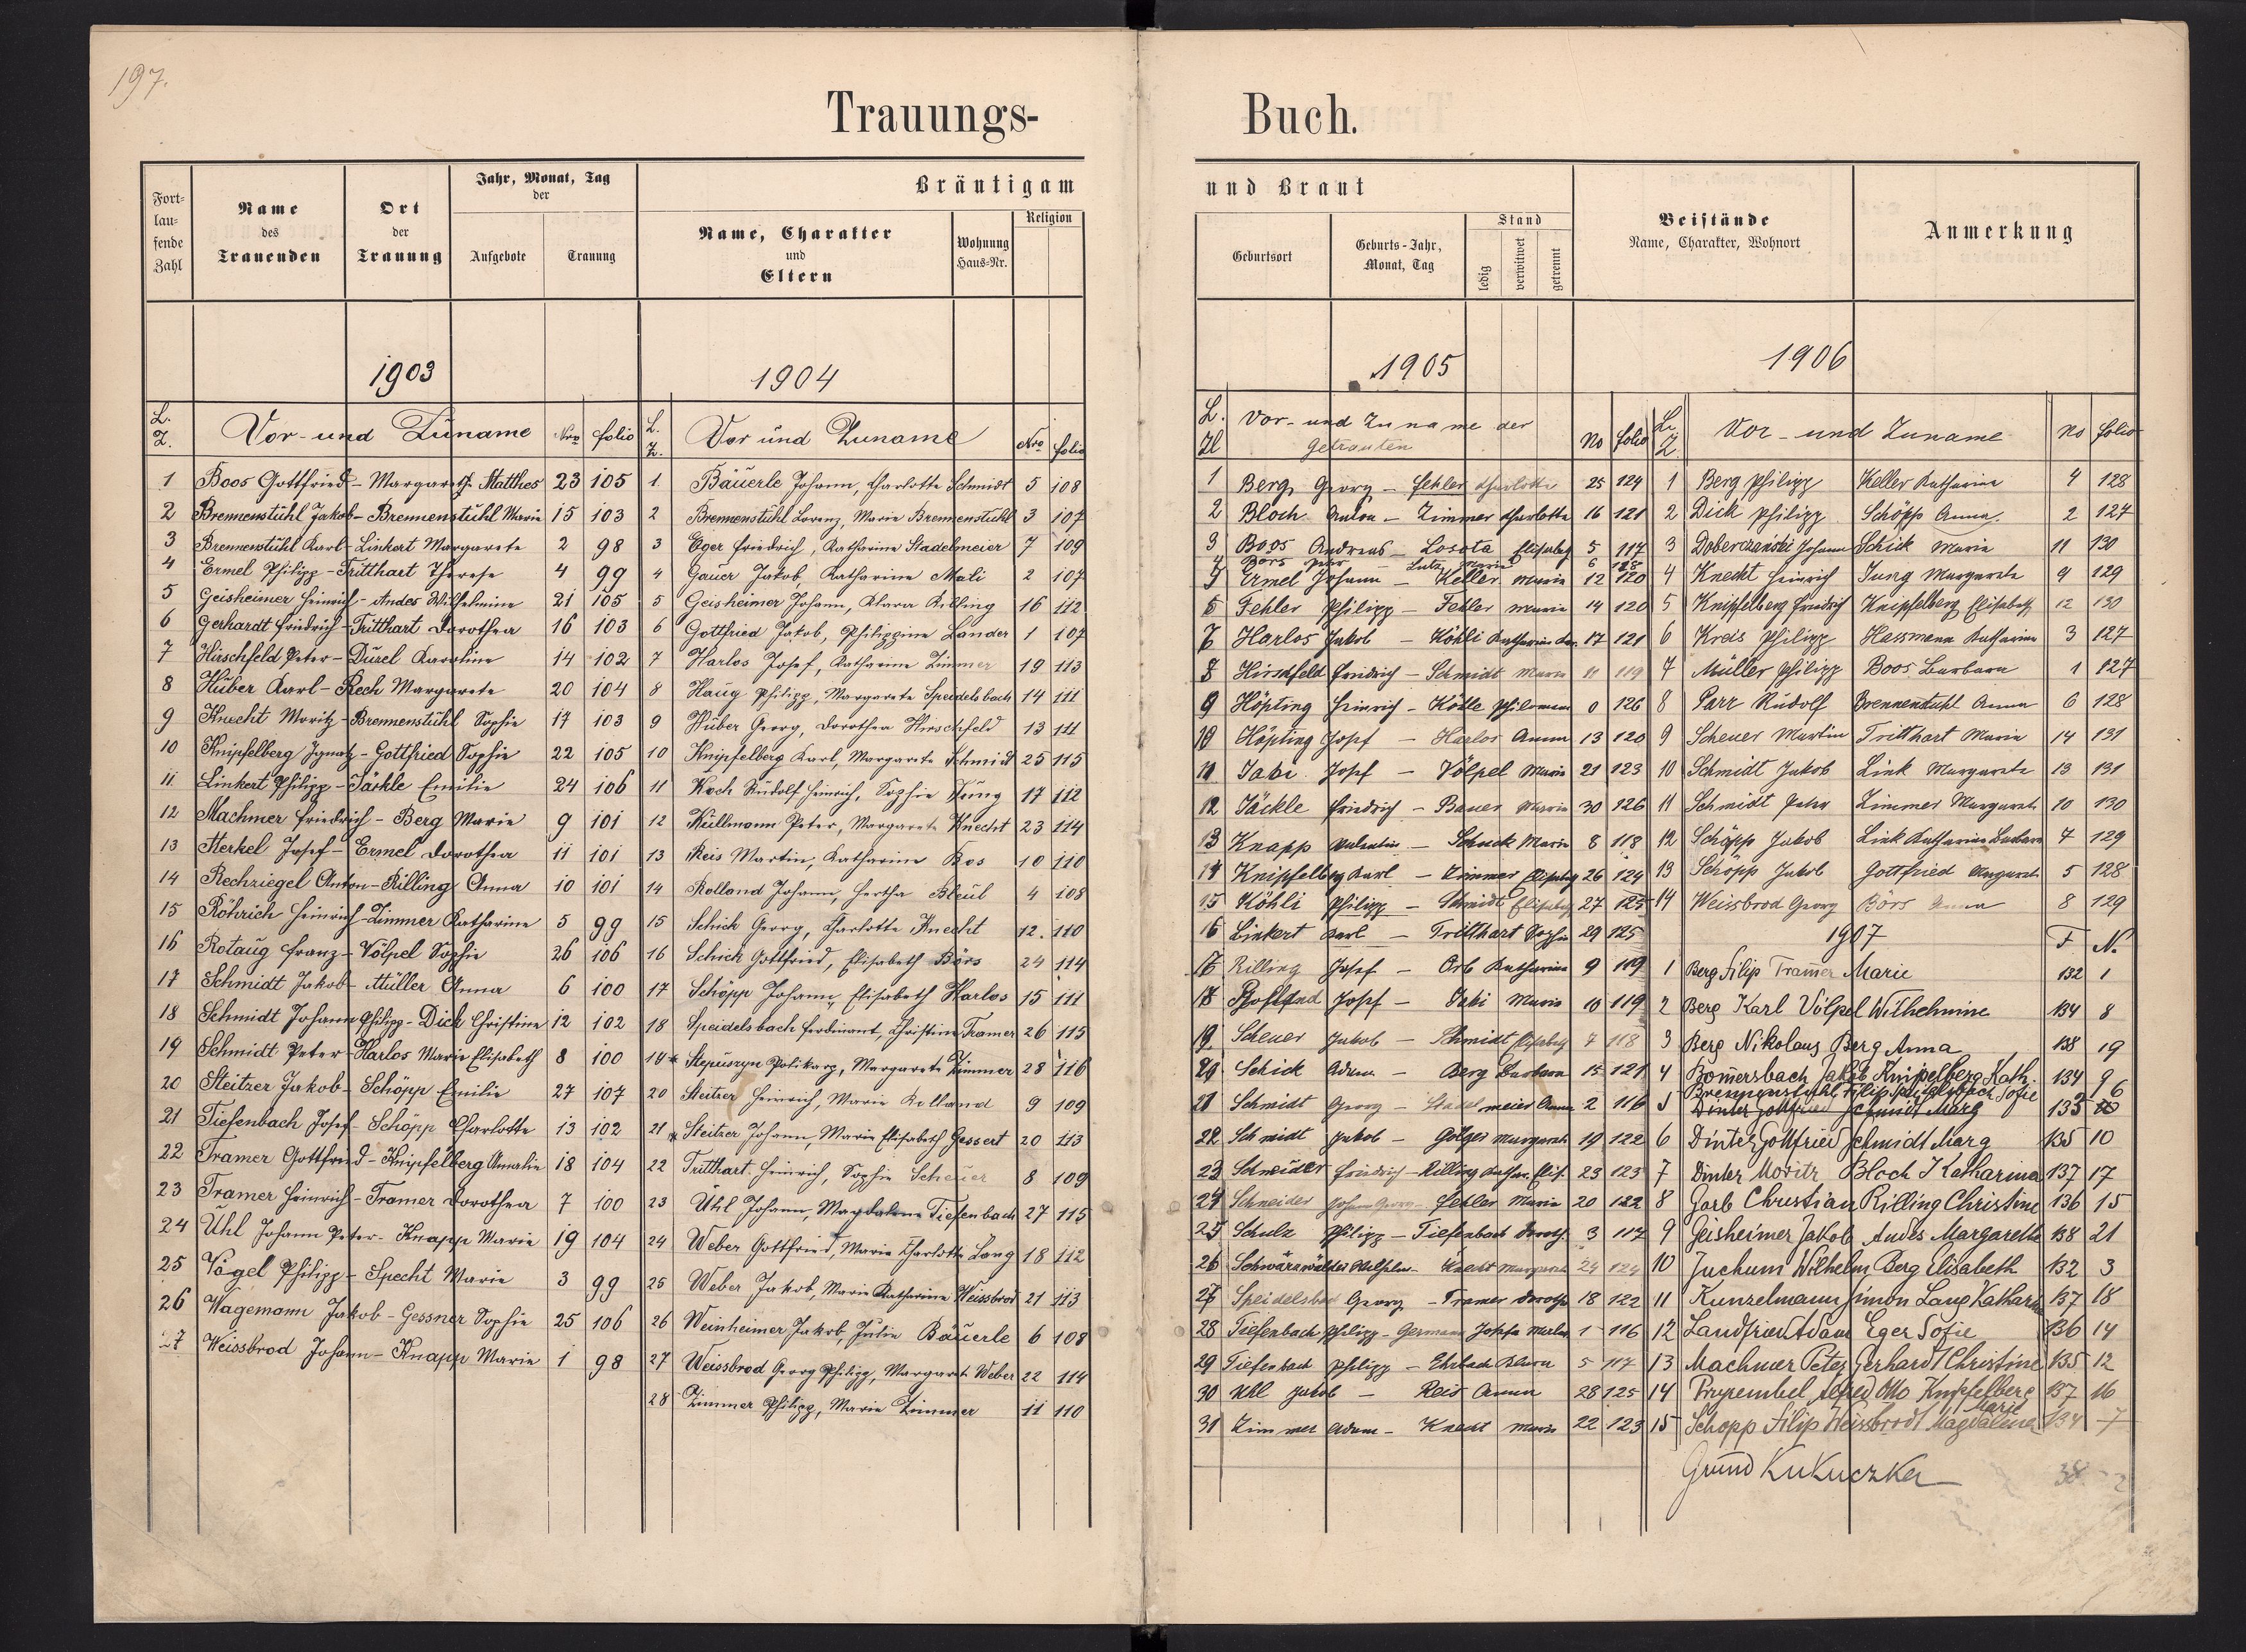 197.
Trauungs-
Fort-
lau-
fende
Zahl
Name
des
Trauenden
Ort
der
Trauung
Jahr, Monat, Tag
der
Aufgebote
Trauung
Bräutigam
Name, Charakter
und
Eltern
Wohnung
Haus-Nr.
Religion
1903
L. Z. Vor- und Zuname Nro folio
1 Boos Gottfried - Margareth Matthes 23 105
2 Brennenstühl Jakob - Brennenstühl Marie 15 103
3 Brennenstühl Karl - Linkert Margarete 2 98
4 Ermel Philipp - Tritthart Therese 4 99
5 Geisheimer Heinrich - Andes Wilhelmine 21 105
6 Gerhardt Friedrich - Tritthart Dorothea 16 103
7 Hirschfeld Peter - Düsel Karoline 14 102
8 Huber Karl - Rech Margarete 20 104
9 Knecht Moritz - Brennenstühl Sophie 17 103
10 Knipfelberg Ignatz - Gottfried Sophie 22 105
11 Linkert Philipp - Jäckle Emilie 24 106
12 Machmer Friedrich - Berg Marie 9 101
13 Merkel Josef - Ermel Dorothea 11 101
14 Rechziegel Anton - Rilling Anna 10 101
15 Röhrich Heinrich - Zimmer Katharine 5 99
16 Rotaug Franz - Völpel Sophie 26 106
17 Schmidt Jakob - Müller Anna 6 100
18 Schmidt Johann Philipp - Dick Christine 12 102
19 Schmidt Peter - Harlos Marie Elisabeth 8 100
20 Steitzer Jakob - Schöpp Emilie 27 107
21 Tiefenbach Josef - Schöpp Charlotte 13 102
22 Tramer Gottfried - Knipfelberg Amalie 18 104
23 Tramer Heinrich - Tramer Dorothea 7 100
24 Uhl Johann Peter - Knapp Marie 19 104
25 Vogel Philipp - Specht Marie 3 99
26 Wagemann Jakob - Gessner Sophie 25 106
27 Weissbrod Johann - Knapp Marie 1 98
1904
L. Z. Vor und Zuname Nro folio
1. Bäuerle Johann, Charlotte Schmidt 5 108
2 Brennenstühl Lorenz, Marie Brennenstühl 3 107
3 Eger Friedrich, Katharine Stadelmeier 7 109
4 Gauer Jakob, Katharine Mali 2 107
5 Geisheimer Johann, Klara Rilling 16 112
6 Gottfried Jakob, Philippine Lander 1 107
7 Harlos Josef, Katharine Zimmer 19 113
8 Haug Philipp, Margarete Speidelsbach 14 111
9 Huber Georg, Dorothea Hirschfeld 13 111
10 Knipfelberg Karl, Margarete Schmidt 25 115
11 Koch Rudolf Heinrich, Sophie Jung 17 112
12 Küllmann Peter, Margarete Knecht 23 114
13 Reis Martin, Katharine Bos 10 110
14 Rolland Johann, Hertha Bleul 4 108
15 Schick Georg, Charlotte Knecht 12. 110
16 Schick Gottfried, Elisabeth Börs 24 114
17 Schöpp Johann, Elisabeth Harlos 15 111
18 Speidelsbach Ferdinant, Christine Tramer 26 115
19 Stepuszyn Polikarp, Margarete Zimmer 28 116
20 Steitzer Heinrich, Marie Rolland 9 109
21 Steitzer Johann, Marie Elisabeth Gessert 20 113
22 Tritthart Heinrich, Sophie Scheuer 8 109
23 Uhl Johann, Magdalene Tiefenbach 27 115
24 Weber Gottfried, Marie Charlotte Lang 18 112
25 Weber Jakob, Marie Katharine Weissbrod 21 113
26 Weinheimer Jakob, Julie Bäuerle 6 108
27 Weissbrod Georg Philipp, Margaret Weber 22 114
28 Zimmer Philipp, Marie Zimmer 11 110
Buch.
und Braut
Geburtsort
Geburts-Jahr,
Monat, Tag
Stand
ledig
verwitwet
getrennt
Beistände
Name, Charakter, Wohnort
Anmerkung
1905
L. Zl Vor- und Zuname der
Getrauten No folio
1 Berg Georg - Fehler Charlotte 25 124
2 Bloch Anton - Zimmer Charlotte 16 121
3 Boos Andreas - Losota Elisabeth 5 117
4 Börs Peter - Lutz Marie 6 118
5 Ermel Johann - Keller Marie 12 120
6 Fehler Philipp - Fehler Marie 14 120
7 Harlos Jakob - Köhli Katharine 17 121
8 Hirschfeld Friedrich - Schmidt Marie 11 119
9 Höpting Heinrich - Kötle Philomena 0 126
10 Höpting Josef - Harlos Anna 13 120
11 Jaki Josef - Völpel Marie 21 123
12 Jäckle Friedrich - Bauer Marie 30 126
13 Knapp Valentin - Schuck Marie 8 118
14 Knipfelberg Karl - Zimmer Elisabeth 26 124
15 Köhli Philipp - Schmidt Elisabeth 27 125
16 Linkert Karl - Tritthart Sophie 29 125
17 Rilling Josef - Orb Katharine 9 119
18 Josef - Jaki Marie 10 119
19 Scheuer Jakob - Schmidt Elisabeth 7 118
20 Schick Adam - Berg Barbara 15 121
21 Schmidt Georg - Stadelmeier Anna 2 116
22 Schmidt Jakob - Golger Margareth 19 122
23 Schneider Friedrich - Rilling Kathar. Elis. 23 123
24 Schneider Johann Georg - Fehler Marie 20 122
25 Schulz Philipp - Tiefenbach Doroth. 3 117
26 Schwarzwälder Wilhelm - Knecht Margareth 24 124
27 Speidelsbach Georg - Tramer Dorothea 18 122
28 Tiefenbach Philipp - Germann Josefa 1 116
29 Tiefenbach Philipp - Ehrbach 5 117
30 Uhl Jakob - Reis Anna 28 125
31 Zimmer Adam - Knecht Marie 22 123
1906
L. Z. Vor- und Zuname No folio
1 Berg Philipp Keller Katharine 4 128
2 Dick Philipp Schöpp Anna. 2 127
3 Doberczański Johann Schick Marie 11 130
4 Knecht Heinrich Jung Margarete 9 129
5 Knipfelberg Friedrich Knipfelberg Elisabeth 12 130
6 Kreis Philipp Hassmann Katharine 3 127
7 Müller Philipp Boos Barbara 1 127
8 Parr Rudolf Brennenstuhl Anna 6 128
9 Scheuer Martin Tritthart Marie 14 131
10 Schmidt Jakob Link Margarete 13 131
11 Schmidt Peter Zimmer Margareth 10 130
12 Schöpp Jakob Link Katharine Barbara 7 129
13 Schöpp Jakob Gottfried Margareth 5 128
14 Weissbrod Georg Börs Anna 8 129
1907 F N.
1 Berg Filip Tram̄er Marie 132 1
2 Berg Karl Völpel Wilhelmine 134 8
3 Berg Nikolaus Berg Anna 138 19
4 Bom̄ersbach Jakob Knipelberg Kath. 134 9
Brennenstuhl Filip Speidelsbach Sofie 6
5 Dinter Gottfried Schmidt Marg 133
6 Dinter Gottfried Schmidt Marg 135 10
7 Dinter Moritz Bloch Katharina 137 17
8 Jorb Christian Rilling Christine 136 15
9 Geisheimer Jakob Andes Margarethe 138 21
10 Juchum Wilhelm Berg Elisabeth 132 3
11 Kunzelmann Simon Lang Katharine 137 18
12 Landfried Adam Eger Sofie 136 14
13 Machmer Peter Gerhardt Christine 135 12
14 Przyrembel Alfred Otto Knipfelberg Marie 137 16
15 Schopp Filip Weissbrodt Magdalena 134 7
Grund Kukuczka 38 2